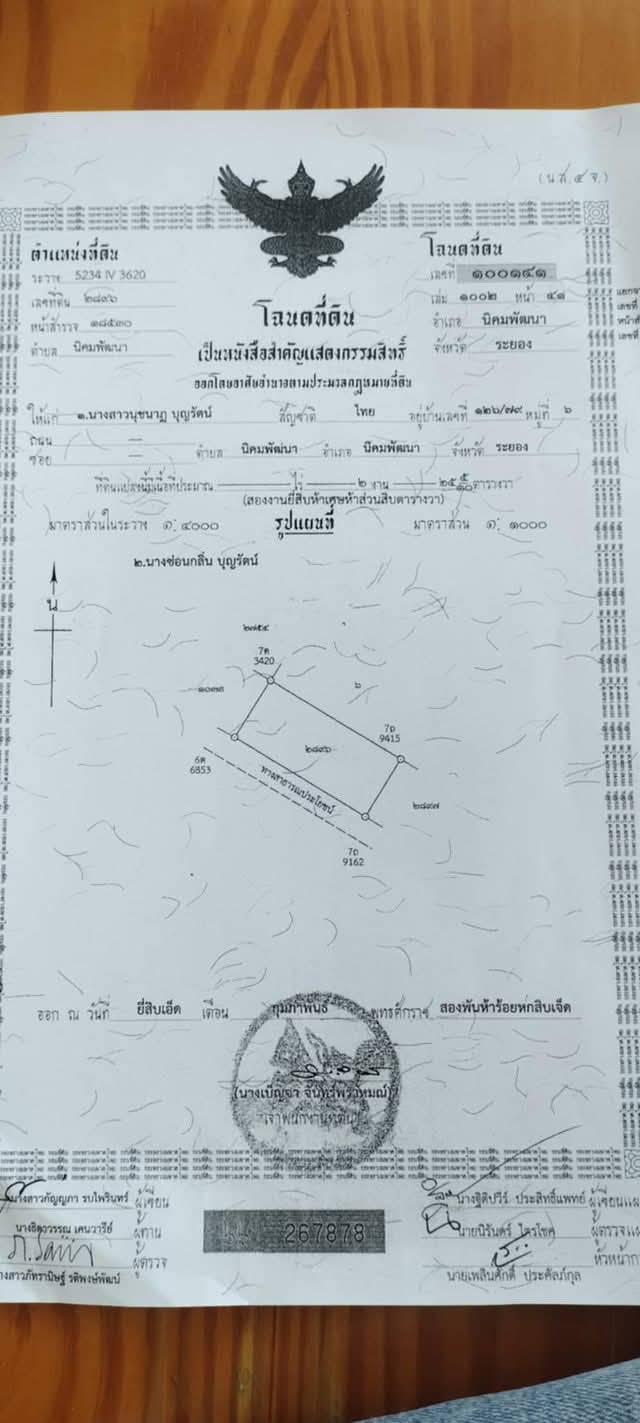 (น.ส.๔ จ.)
ตำแหน่งที่ดิน
ระวาง 5234 IV 3620
เลขที่ดิน ๒๘๙๖
หน้าสำรวจ ๑๘๕๓๐
ตำบล นิคมพัฒนา
โฉนดที่ดิน
เลขที่ ๑๐๐๑๔๑
เล่ม ๑๐๐๒ หน้า ๔๑
อำเภอ นิคมพัฒนา
จังหวัด ระยอง
โฉนดที่ดิน
เป็นหนังสือสำคัญแสดงกรรมสิทธิ์
ออกโดยอาศัยอำนาจตามประมวลกฎหมายที่ดิน
ให้แก่ ๑.นางสาวนุชนาฏ บุญรัตน์ สัญชาติ ไทย อยู่บ้านเลขที่ ๑๒๖/๗๙ หมู่ที่ ๖
ถนน —
ซอย — ตำบล นิคมพัฒนา อำเภอ นิคมพัฒนา จังหวัด ระยอง
ที่ดินแปลงนี้มีเนื้อที่ประมาณ — ไร่ ๒ งาน ๒๕ ๕/๑๐ ตารางวา
(สองงานยี่สิบห้าเศษห้าส่วนสิบตารางวา)
มาตราส่วนในระวาง ๑: ๔๐๐๐ รูปแผนที่ มาตราส่วน ๑: ๑๐๐๐
๒.นางซ่อนกลิ่น บุญรัตน์
น
๒๗๕๔
7ต
3420
๖
7ถ
9415
๒๘๙๖
6ต
6853
ทางสาธารณประโยชน์
๒๘๙๗
7ถ
9162
ออก ณ วันที่ ยี่สิบเอ็ด เดือน กุมภาพันธ์ พุทธศักราช สองพันห้าร้อยหกสิบเจ็ด
(นางเบ็ญจา จันทร์พราหมณ์)
เจ้าพนักงานที่ดิน
นางสาวกัญญภา รบไพรินทร์ ผู้เขียน
ผู้ทาน
ผู้ตรวจ
267878
นางฐิติปวีร์ ประสิทธิ์แพทย์ ผู้เขียนแผ
นายนิรันดร์ ไตรโชค ผู้ตรวจแผ
หัวหน้าก
นายเพลินศักดิ์ ประคัลภ์กุล